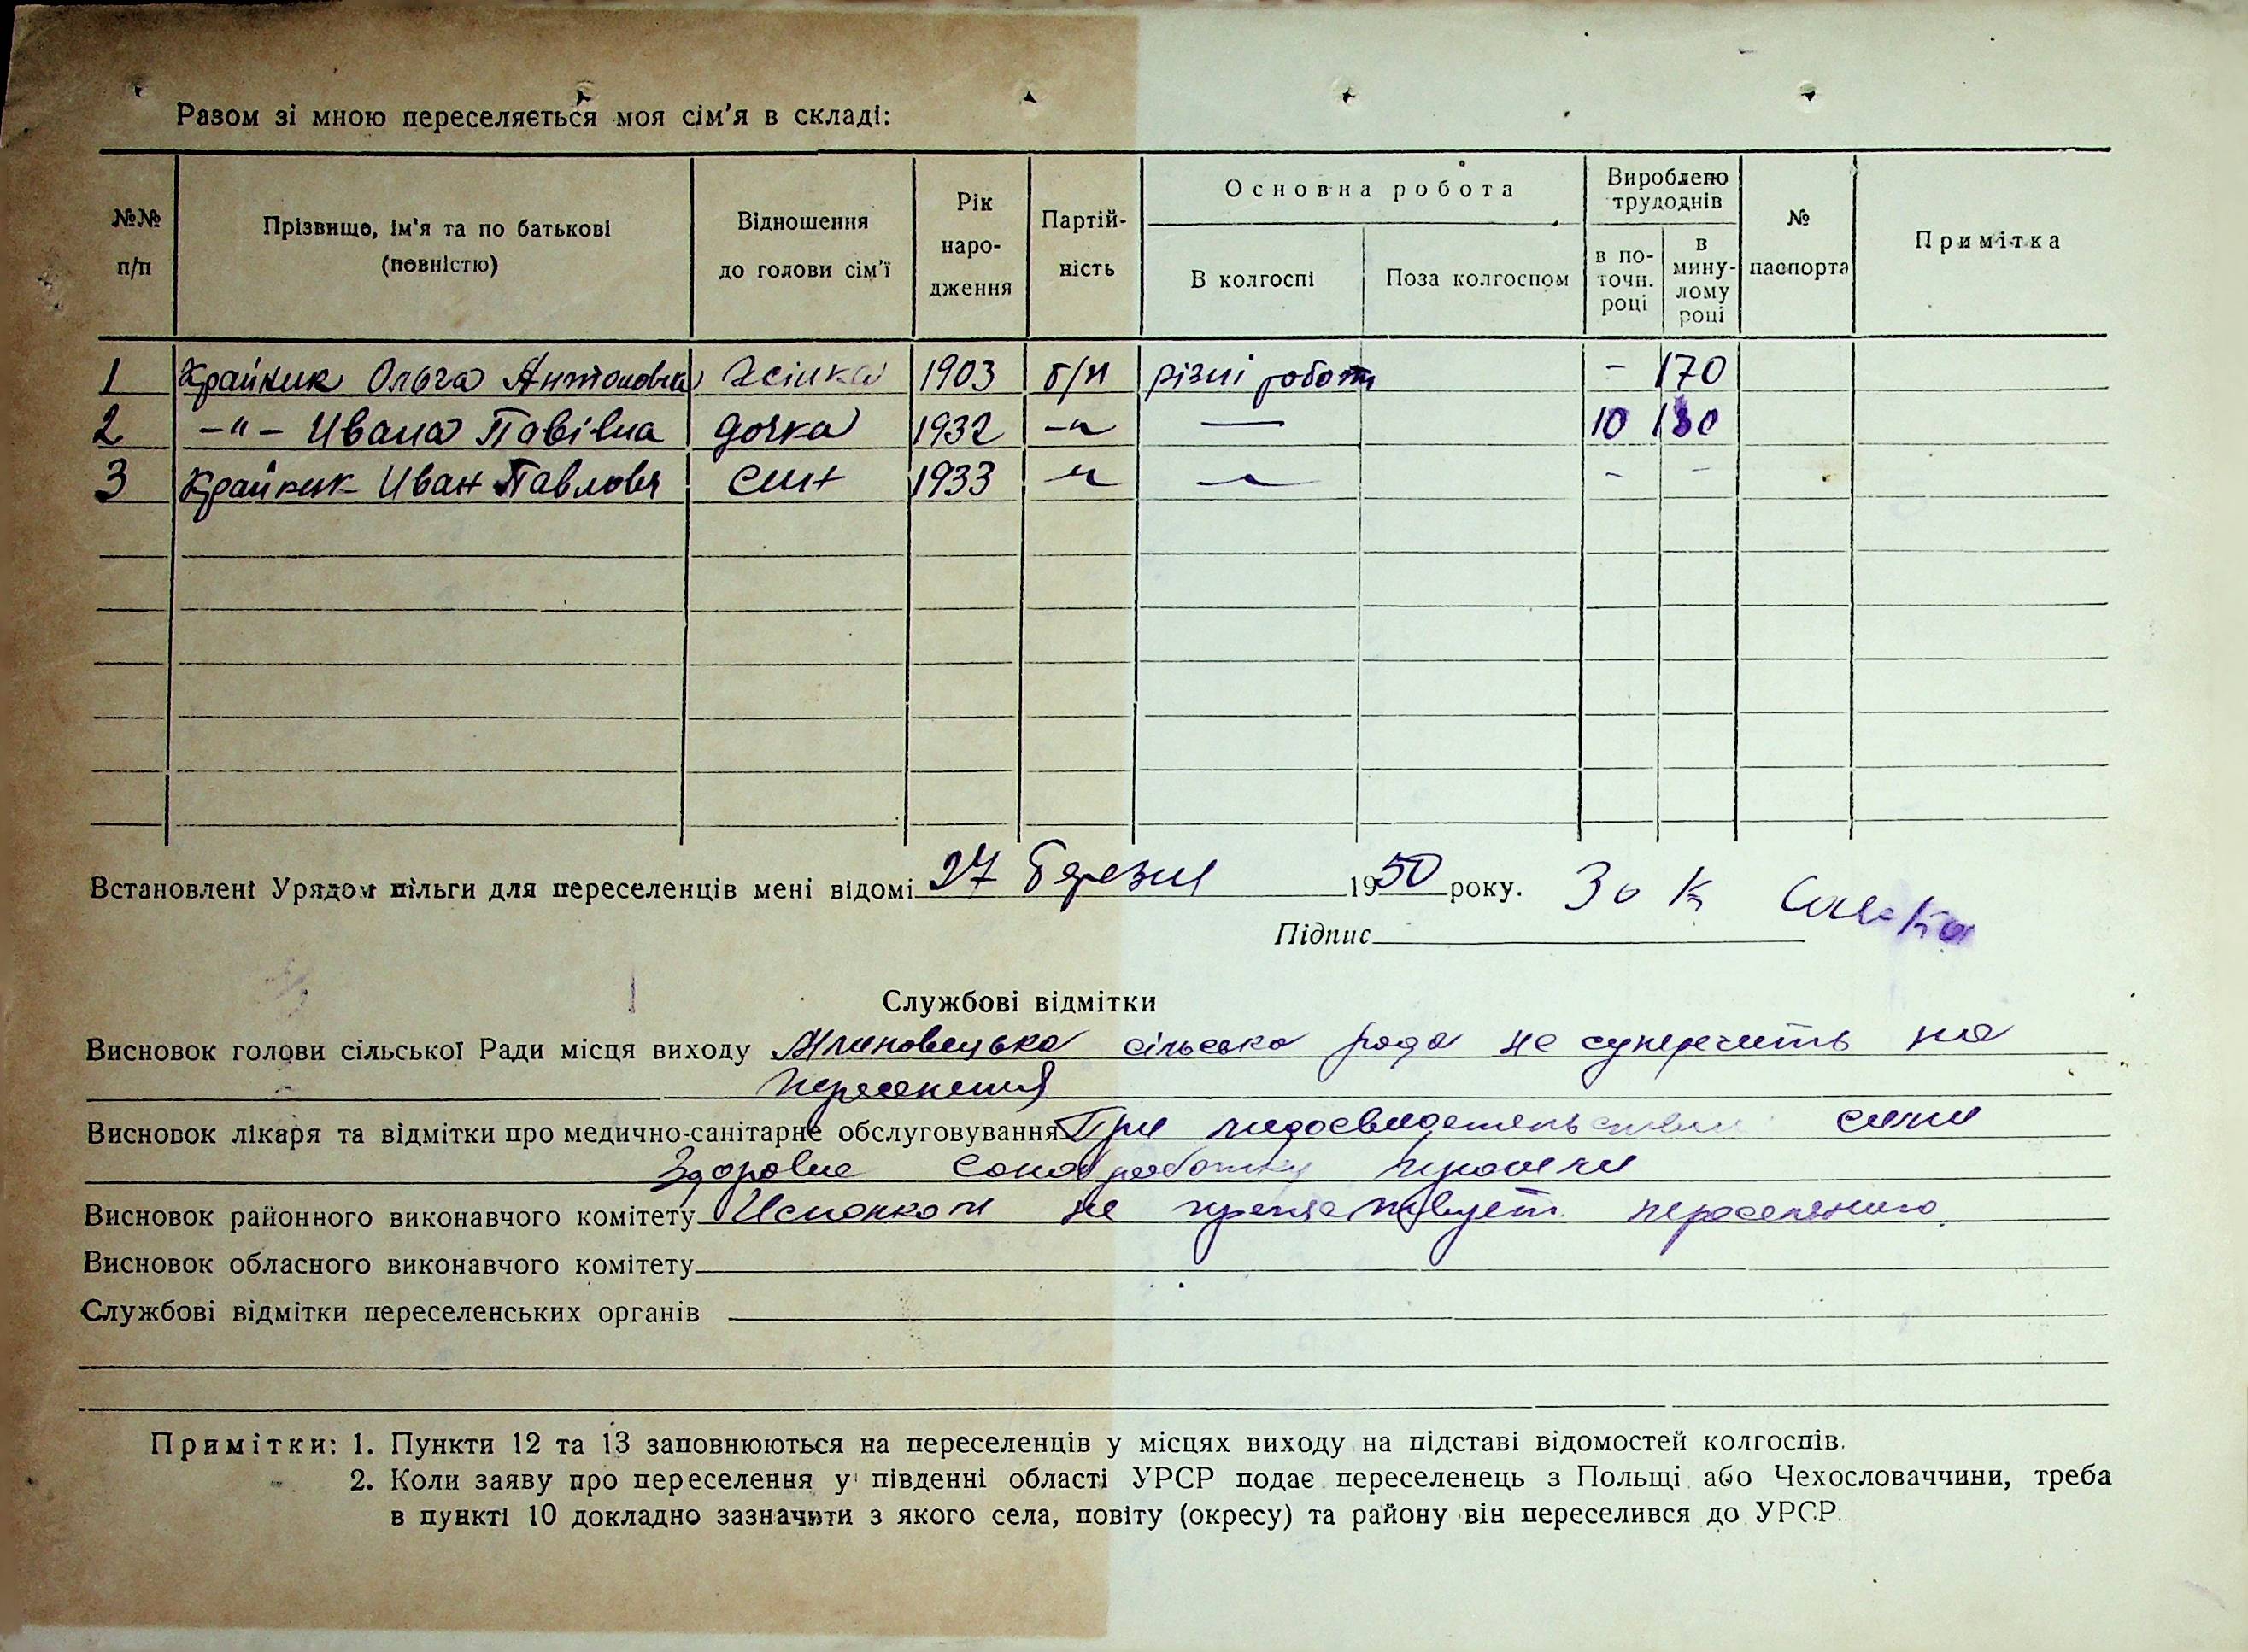 Разом зі мною переселяється моя сім'я в складі:
№№ п/п
Прізвище, ім'я та по батькові (повністю)
Відношення до голови сім'ї
Рік народження
Партій-ність
Основна робота
В колгоспі
Поза колгоспом
Вироблено трудоднів
в по-точн. році
в мину-лому році
№ паспорта
Примітка
1 Крайник Ольга Антоновна жінка 1903 б/п різні роботи - 170
2 -"- Ивана Павівна дочка 1932 -"- — 10 130
3 Крайник Иван Павлович син 1933 -"- -"- - -
Встановлені Урядом пільги для переселенців мені відомі 27 березня 1950 року.
Підпис
Службові відмітки
Висновок голови сільської Ради місця виходу сільська рада не суперечить на
переселення
Висновок лікаря та відмітки про медично-санітарне обслуговування При семи
здорові
Висновок районного виконавчого комітету Исполком не препятствует переселению.
Висновок обласного виконавчого комітету
Службові відмітки переселенських органів
Примітки: 1. Пункти 12 та 13 заповнюються на переселенців у місцях виходу на підставі відомостей колгоспів.
2. Коли заяву про переселення у південні області УРСР подає переселенець з Польщі або Чехословаччини, треба
в пункті 10 докладно зазначити з якого села, повіту (окресу) та району він переселився до УРСР.